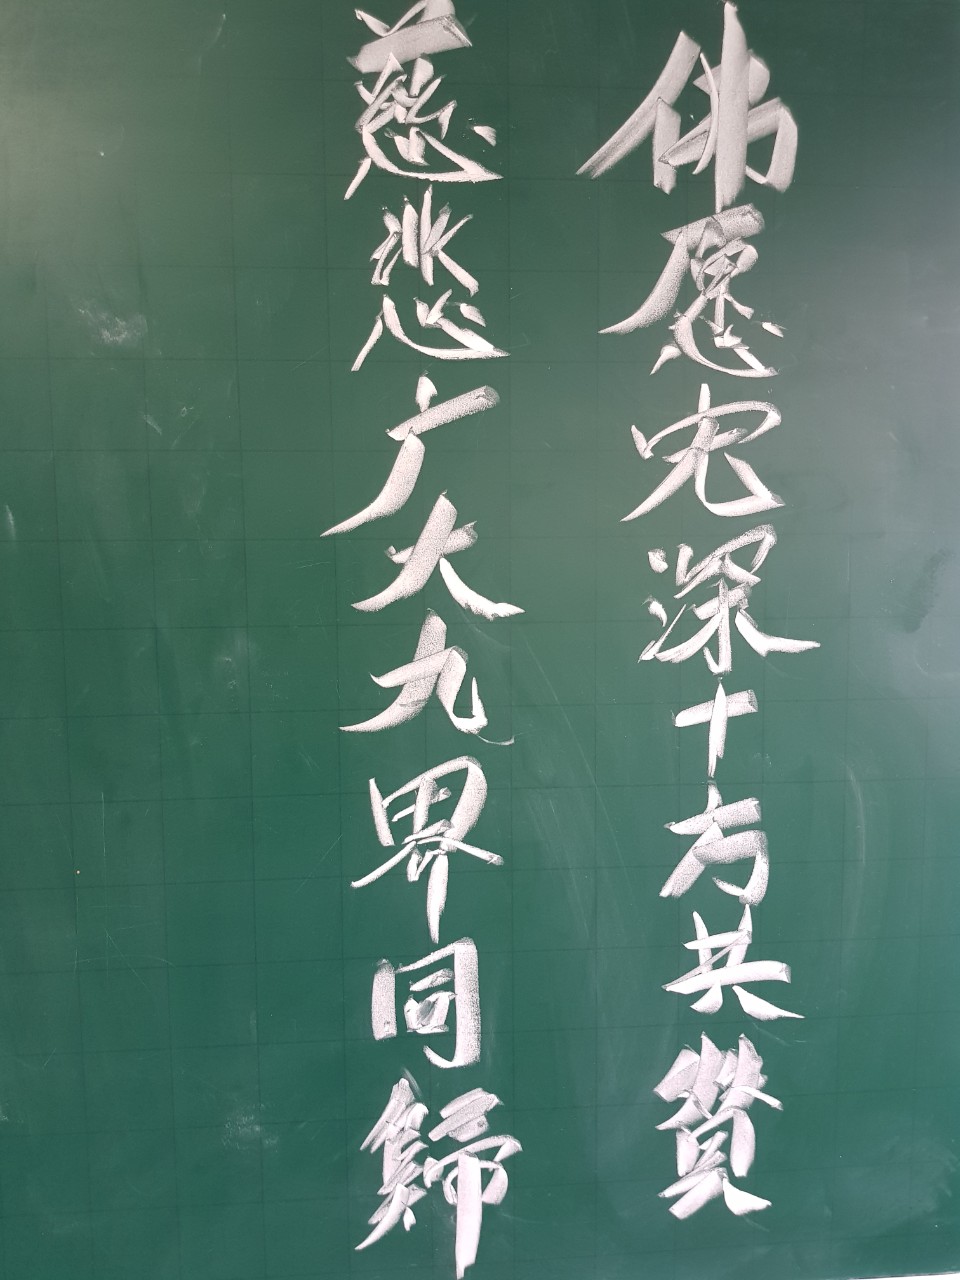 佛愿宏深十方共贊
慈悲广大九界同歸